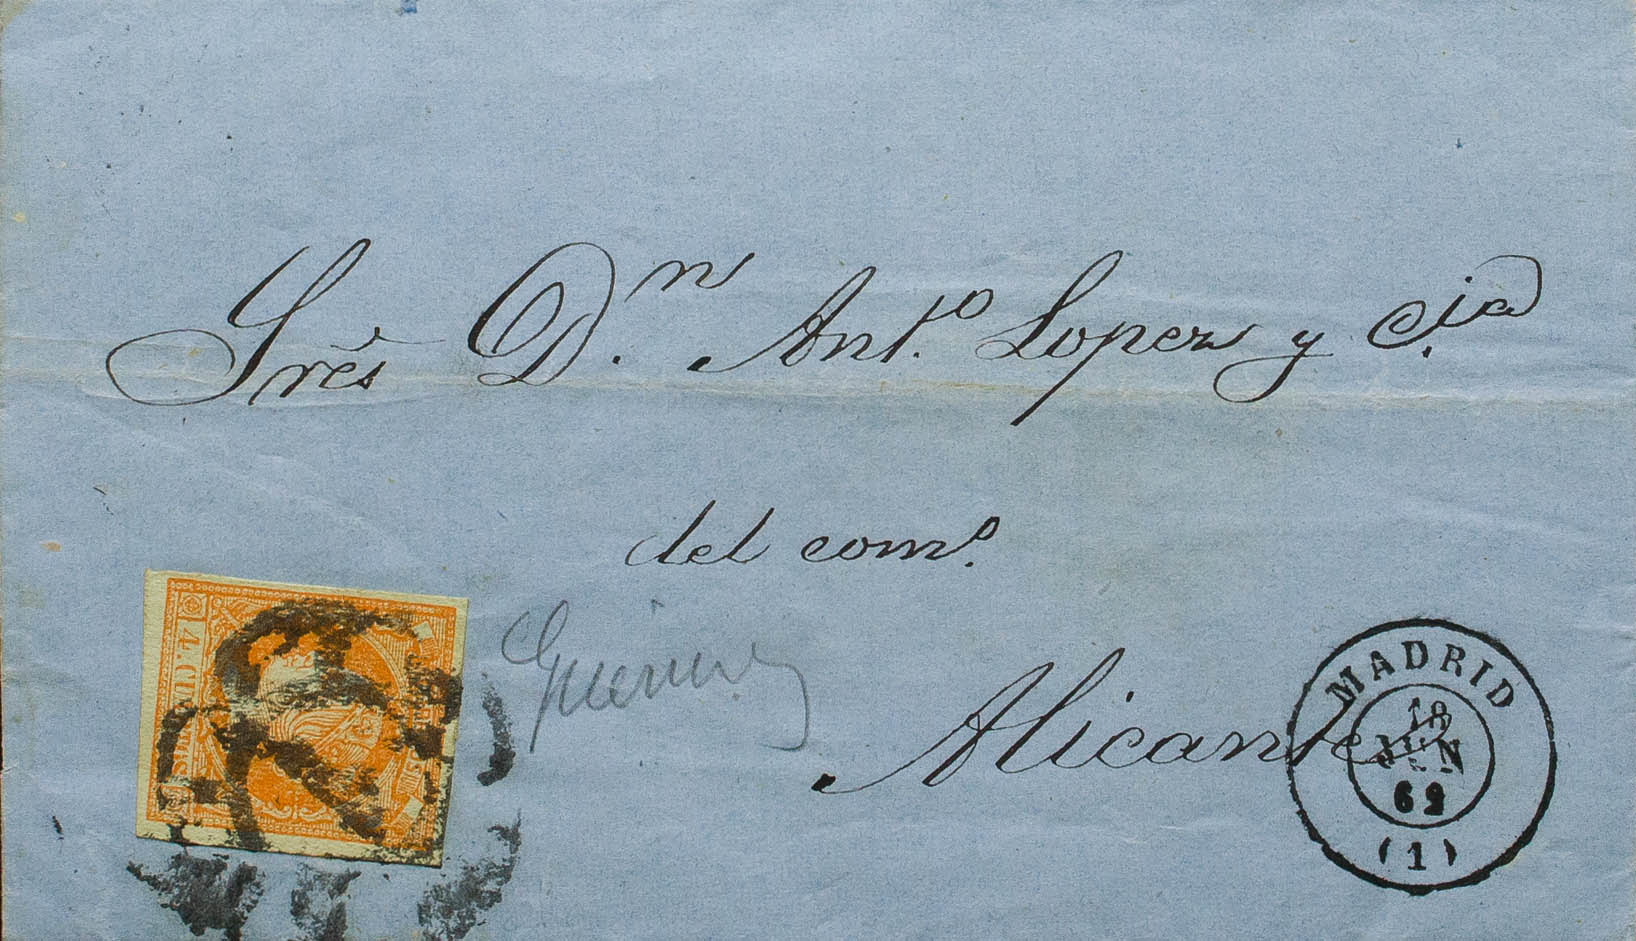 Sres Dn. Anto. Lopez y Cia.
del como.
Alicante
MADRID
18
JUN
62
(1)
4 CUARTOS